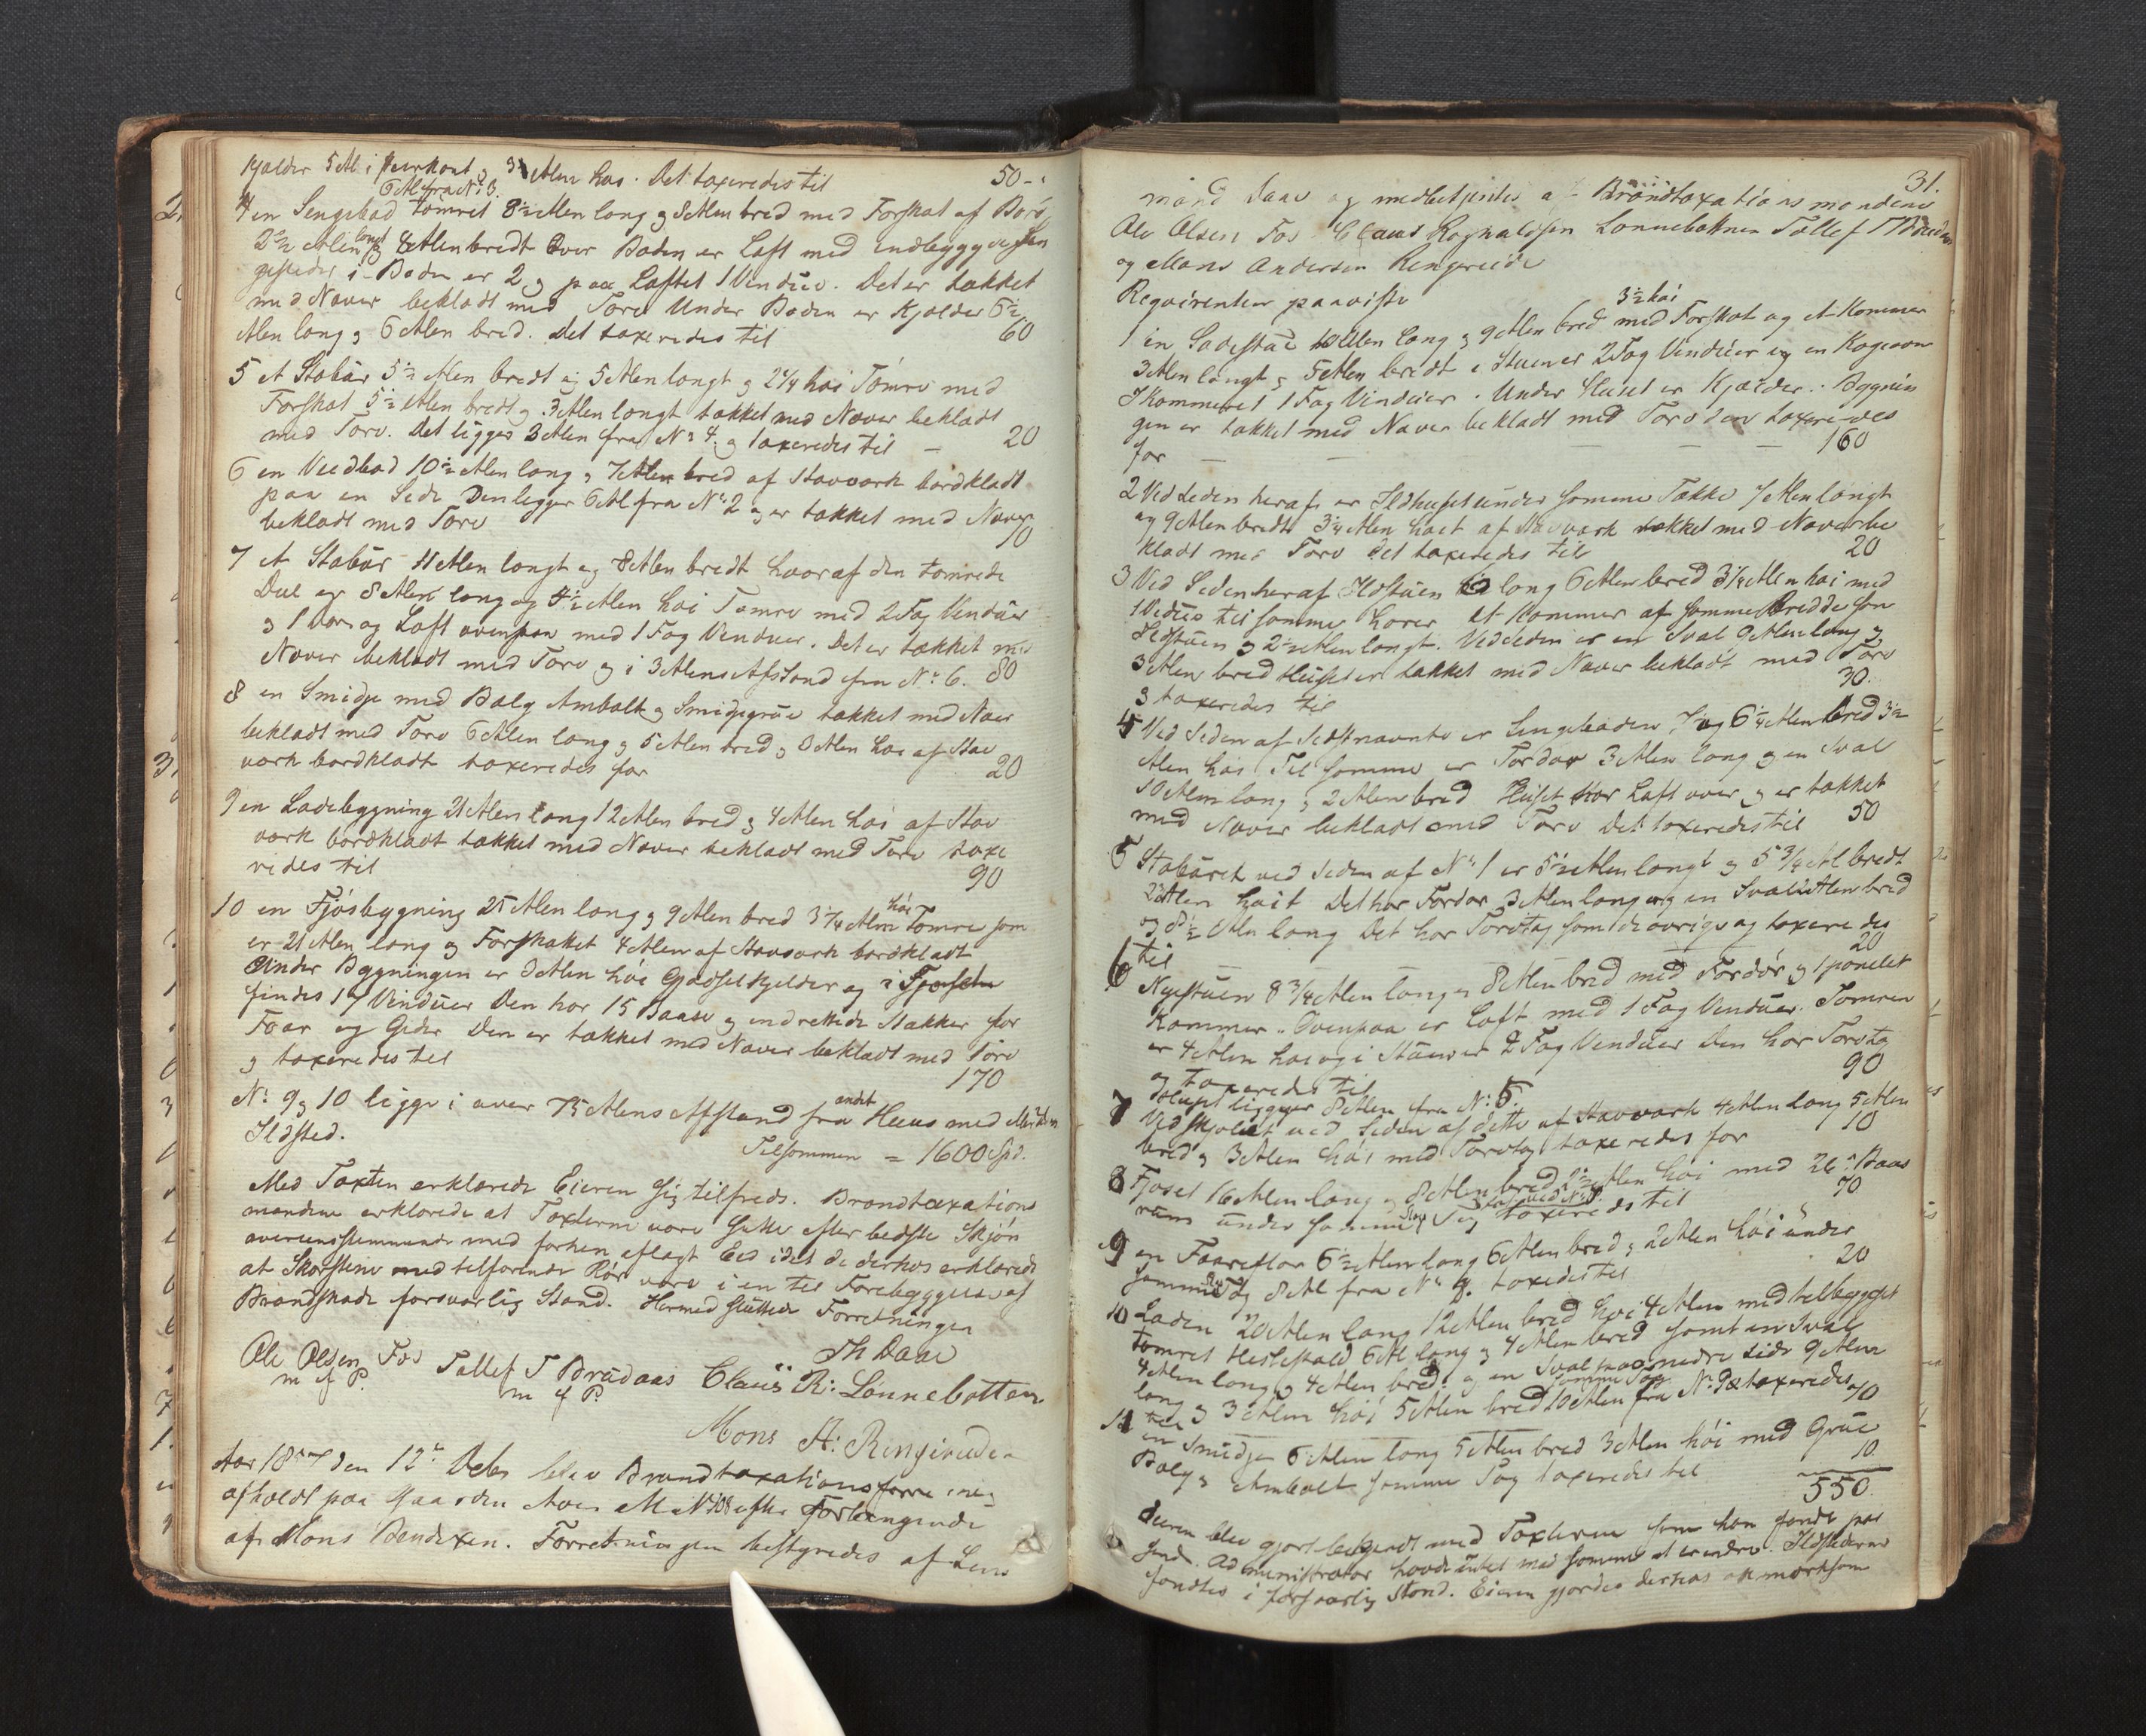 Kjælder 5 Al. i fiirkant og 3 Alen høi. Det taxeredes til 50-
6 Al fra No 3.
4 en Sengebod tømret 8½ Alen lang og 8 Alen bred med Forskot af Bord
2½ Alen langt og 8 Alen bredt Over Boden er Loft med indbygget
i Boden er 2 og paa Loftet 1 Vindue. Det er tækket
med Næver beklædt med Torv Under Boden er Kjælder 6½
Alen lang og 6 Alen bred. Det taxeredes til 60
5 et Stabur 5½ Alen bredt og 5 Alen langt og 2¼ høi Tømre med
Forskot 5½ Alen bredt og 3 Alen langt tækket med Næver beklædt
med Torv. Det ligger 3 Alen fra No 4. og taxeredes til - 20
6 en Veedbod 10½ Alen lang og 7 Alen bred af Stavværk bordklædt
paa en Side Den ligger 6 Al fra No 2 og er tækket med Næver
beklædt med Torv 10
7 et Stabur 11 Alen langt og 8 Alen bredt hvoraf den tømrede
Deel er 8 Alen lang og 4½ Alen høi Tømre med 2 Fag Vinduer
og 1 og Loft ovenpaa med 1 Fag Vinduer. Det er tækket med
Næver beklædt med Torv og i 3 Alens Afstand fra No 6. 80
8 en Smidje med Bælg Ambolt og Smidjegrue tækket med Næver
beklædt med Torv 6 Alen lang og 5 Alen bred og 3 Alen høi af Stav
værk bordklædt taxeredes for 20
9 en Ladebygning 21 Alen lang 12 Alen bred og 4 Alen høi af Stav
værk bordklædt tækket med Næver beklædt med Torv taxe
redes til 90
10 en Fjøsbygning 25 Alen lang og 9 Alen bred 3¼ Alen høi Tømre som
er 21 Alen lang og Forskottet 4 Alen af Stavværk bordklædt
Under Bygningen er 3 Alen høi Gjødselkjelder og i Fjøset
findes 17 Vinduer Den har 15 Baase og indrettede Stakker for
Faar og Geder Den er tækket med Næver beklædt med Torv
og taxeredes til 170
No 9 og 10 ligge i over 75 Alens Afstand fra andet Huus med
Ildsted.
Tilsammen = 1600 Spd.
Med Taxten erklærede Eieren sig tilfreds. Brandtaxations
mændene erklærede at Taxterne vare satte efter bedste Skjøn
overeensstemmende med forhen aflagt Eed idet de derhos erklærede
at Skorstene med tilhørende Rør vare i en til Forebyggelse af
Brandskade forsvarlig Stand. Hermed sluttede Forretningen
Th Daae
Ole Olsen Fos Tollef T Bradaas Claus R: Lønnebotten
m f P. m f P.
Mons A: Ringereide
Aar 1857 den 12te Debr blev Brandtaxationsforretning
afholdt paa Gaarden M No 108 efter Forlangende
af Mons Bendixen. Forretningen bestyredes af Lens
31.
mand Daae og medbetjentes af Brandtaxationsmændene
Ole Olsen Fos Claus Rognaldsen Lønnebotten Tollef T Bradaas
og Mons Andersen Ringereide
Reqvirenten paaviste
3½ høi
1 en Ladestue 10 Alen lang og 9 Alen bred med Forskot og et Kammer
3 Alen langt og 5 Alen bredt i Stuen er 2 Fag Vinduer og en Kogeovn
I Kammeret 1 Fag Vinduer. Under Huset er Kjælder. Bygnin
gen er tækket med Næver beklædt med Torv den taxeredes
for — — — 160
2 Ved Siden heraf er Ildhuset under samme Tække 7 Alen langt
og 9 Alen bredt 3¼ Alen høit af Stavværk tækket med Næver be
klædt med Torv det taxeredes til 20
3 Ved Siden heraf Ildstuen lang 6 Alen bred 3¼ Alen høi med
1 Vindue til samme hører et Kammer af samme Bredde som
Ildstuen og 2½ Alen langt. Ved Siden er en Sval 9 Alen lang og
3 Alen bred Huset er tækket med Næver beklædt med Torv
og taxeredes til 30.
4 Ved Siden af sidstnævnte er Sengeboden 7 og 6¼ Alen bred 3½
Alen høi Til samme er Fordør 3 Alen lang og en Sval
10 Alen lang og 2 Alen bred Huset har Loft over og er tækket
med Næver beklædt med Torv Det taxeredes til 50
5 Stabureet ved Siden af No 1 er 5½ Alen langt og 5¾ Al bredt
Alen høit Det har Fordør 3 Alen lang og en Sval Alen bred
og 8½ Alen lang Det har Torvtag som de øvrige og taxeredes
til 20
6 Nyestuen 8¾ Alen lang og 8 Alen bred med Fordør og 1 panelet
Kammer. Ovenpaa er Loft med 1 Fag Vinduer. Tømren
er 4 Alen høi og i Stuen er 2 Fag Vinduer Den har Torvtag
og taxeredes til 90
Huset ligger 8 Alen fra No 5.
7 Vedskjulet ved Siden af dette af Stavværk 4 Alen lang 5 Alen
bred og 3 Alen høi med Torvtag taxeredes for 10
8 Fjøset 16 Alen lang og 8 Alen bred 2½ Alen høi med 26 Baas
rum under samme Tag og taxeredes til 70
9 en Faareflor 6½ Alen lang 6 Alen bred og 2 Alen høi under
samme Tag 8 Al fra No 8. taxeredes til 20
10 Laden 20 Alen lang 12 Alen bred høi 4 Alen med tilbygget
tømret Hestestald 6 Al lang og 4 Alen bred samt en Sval
4 Alen lang og 4 Alen bred. og en Sval paa nedre Side 9 Alen
lang og 3 Alen høi 5 Alen bred samme Tag 10 Alen fra No 9 taxeredes
til 70
11 en Smidje 6 Alen lang 5 Alen bred 3 Alen høi med Grue
Bælg og Ambolt samme Tag taxeredes til 10
550
Eieren blev gjort bekjendt med Taxterne som han fandt pas
sende. Administrator havde intet mod samme at erindre. Ildstederne
fandtes i forsvarlig Stand. Eieren gjordes derhos opmærksom